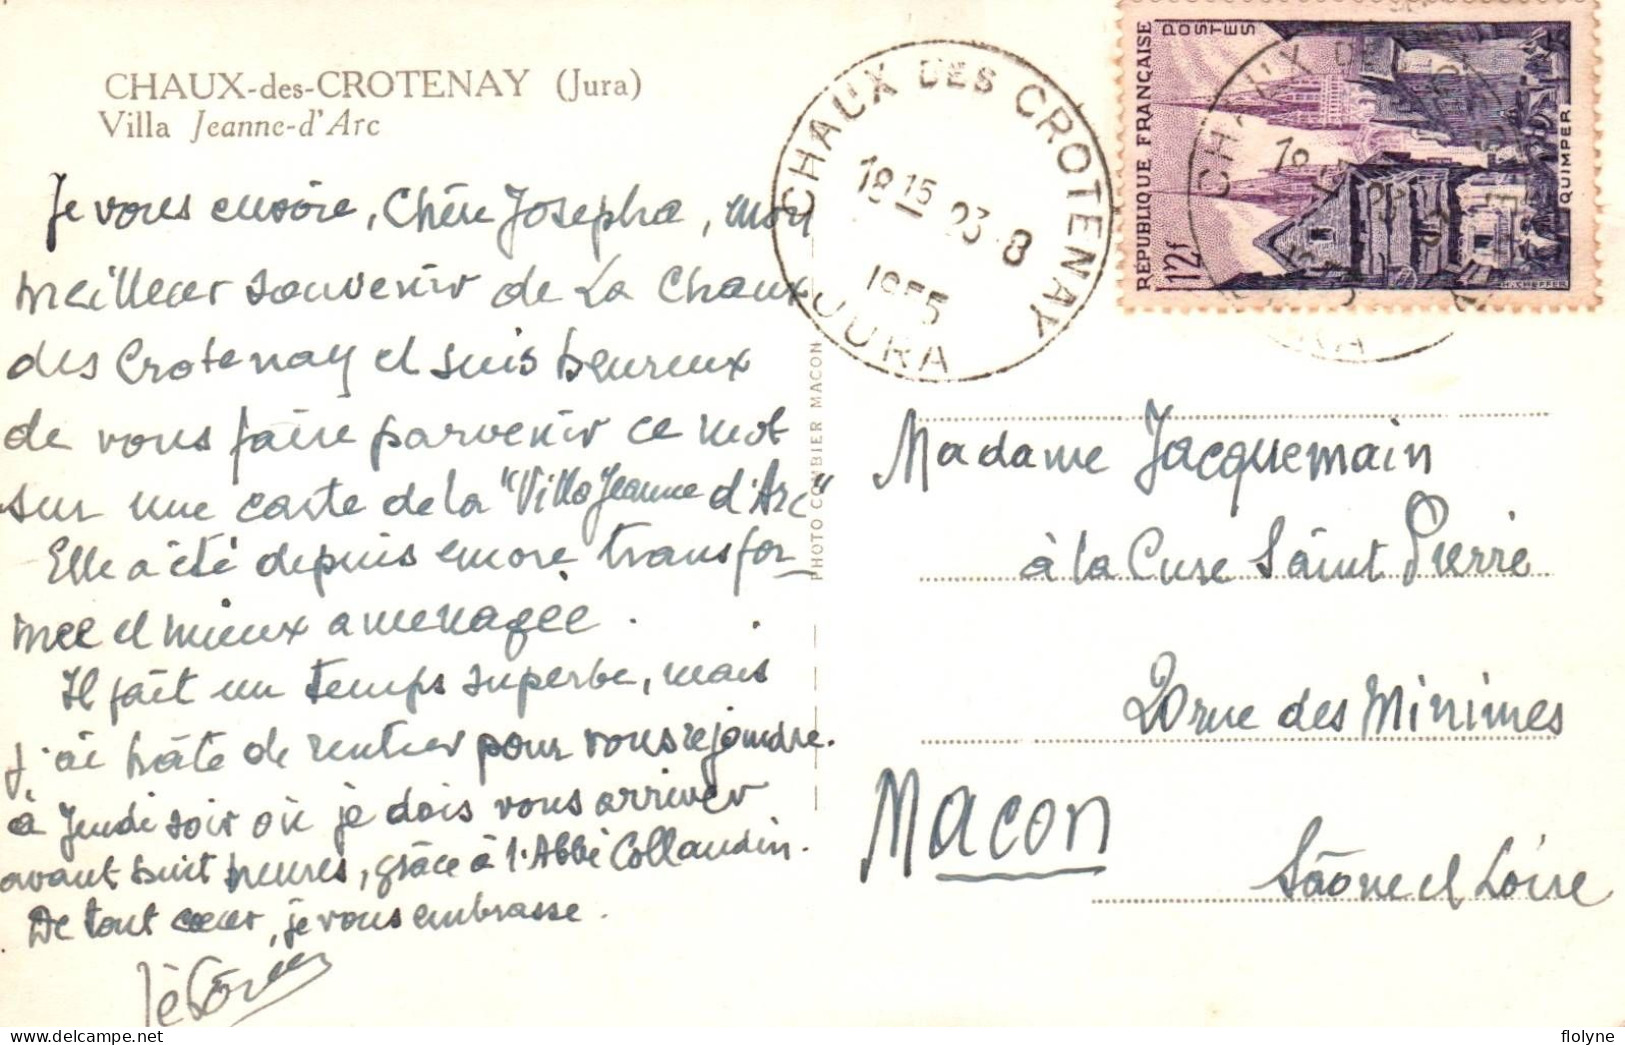 CHAUX-des-CROTENAY (Jura)
Villa Jeanne-d'Arc
Je vous envoie, Chère Josepha, mon
meilleur souvenir de La Chaux
des Crotenay et suis heureux
de vous faire parvenir ce mot
sur une carte de la "Villa Jeanne d'Arc"
Elle a été depuis encore transfor-
mée et mieux aménagée.
Il fait un temps superbe, mais
j'ai hâte de rentrer pour vous rejoindre.
à Jeudi soir où je dois vous arriver
avant huit heures, grâce à l'Abbé Collaudin.
De tout cœur, je vous embrasse.
PHOTO COMBIER MACON
CHAUX DES CROTENAY
18 15 23-8
1955
JURA
POSTES
REPUBLIQUE FRANÇAISE
12f
QUIMPER
CHAUX DES
18
Madame Jacquemain
à la Cure Saint Pierre
20 rue des Minimes
Macon
Saône et Loire
flolyne